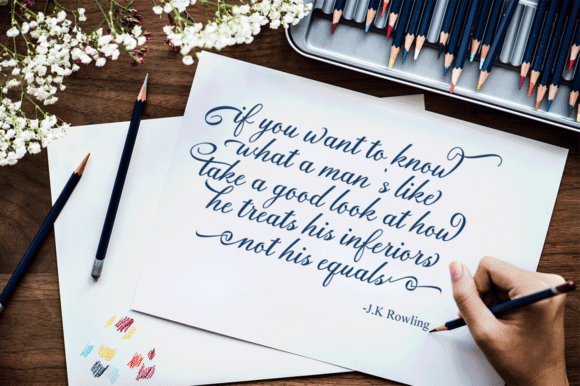 if you want to know
what a man's like
take a good look at how
he treats his inferiors
not his equals
-J.K Rowling